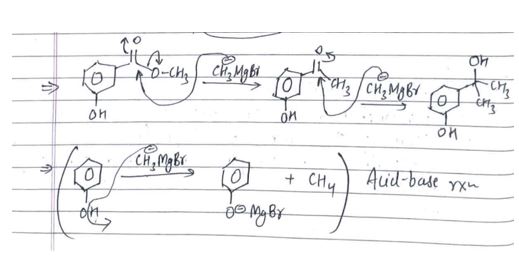 ⇒ O O-CH₃ OH CH₃⊖MgBr O CH₃ OH CH₃⊖MgBr OH CH₃ CH₃ OH
⇒ ( OH CH₃⊖MgBr O⊖MgBr + CH₄ ) Acid-base rxn